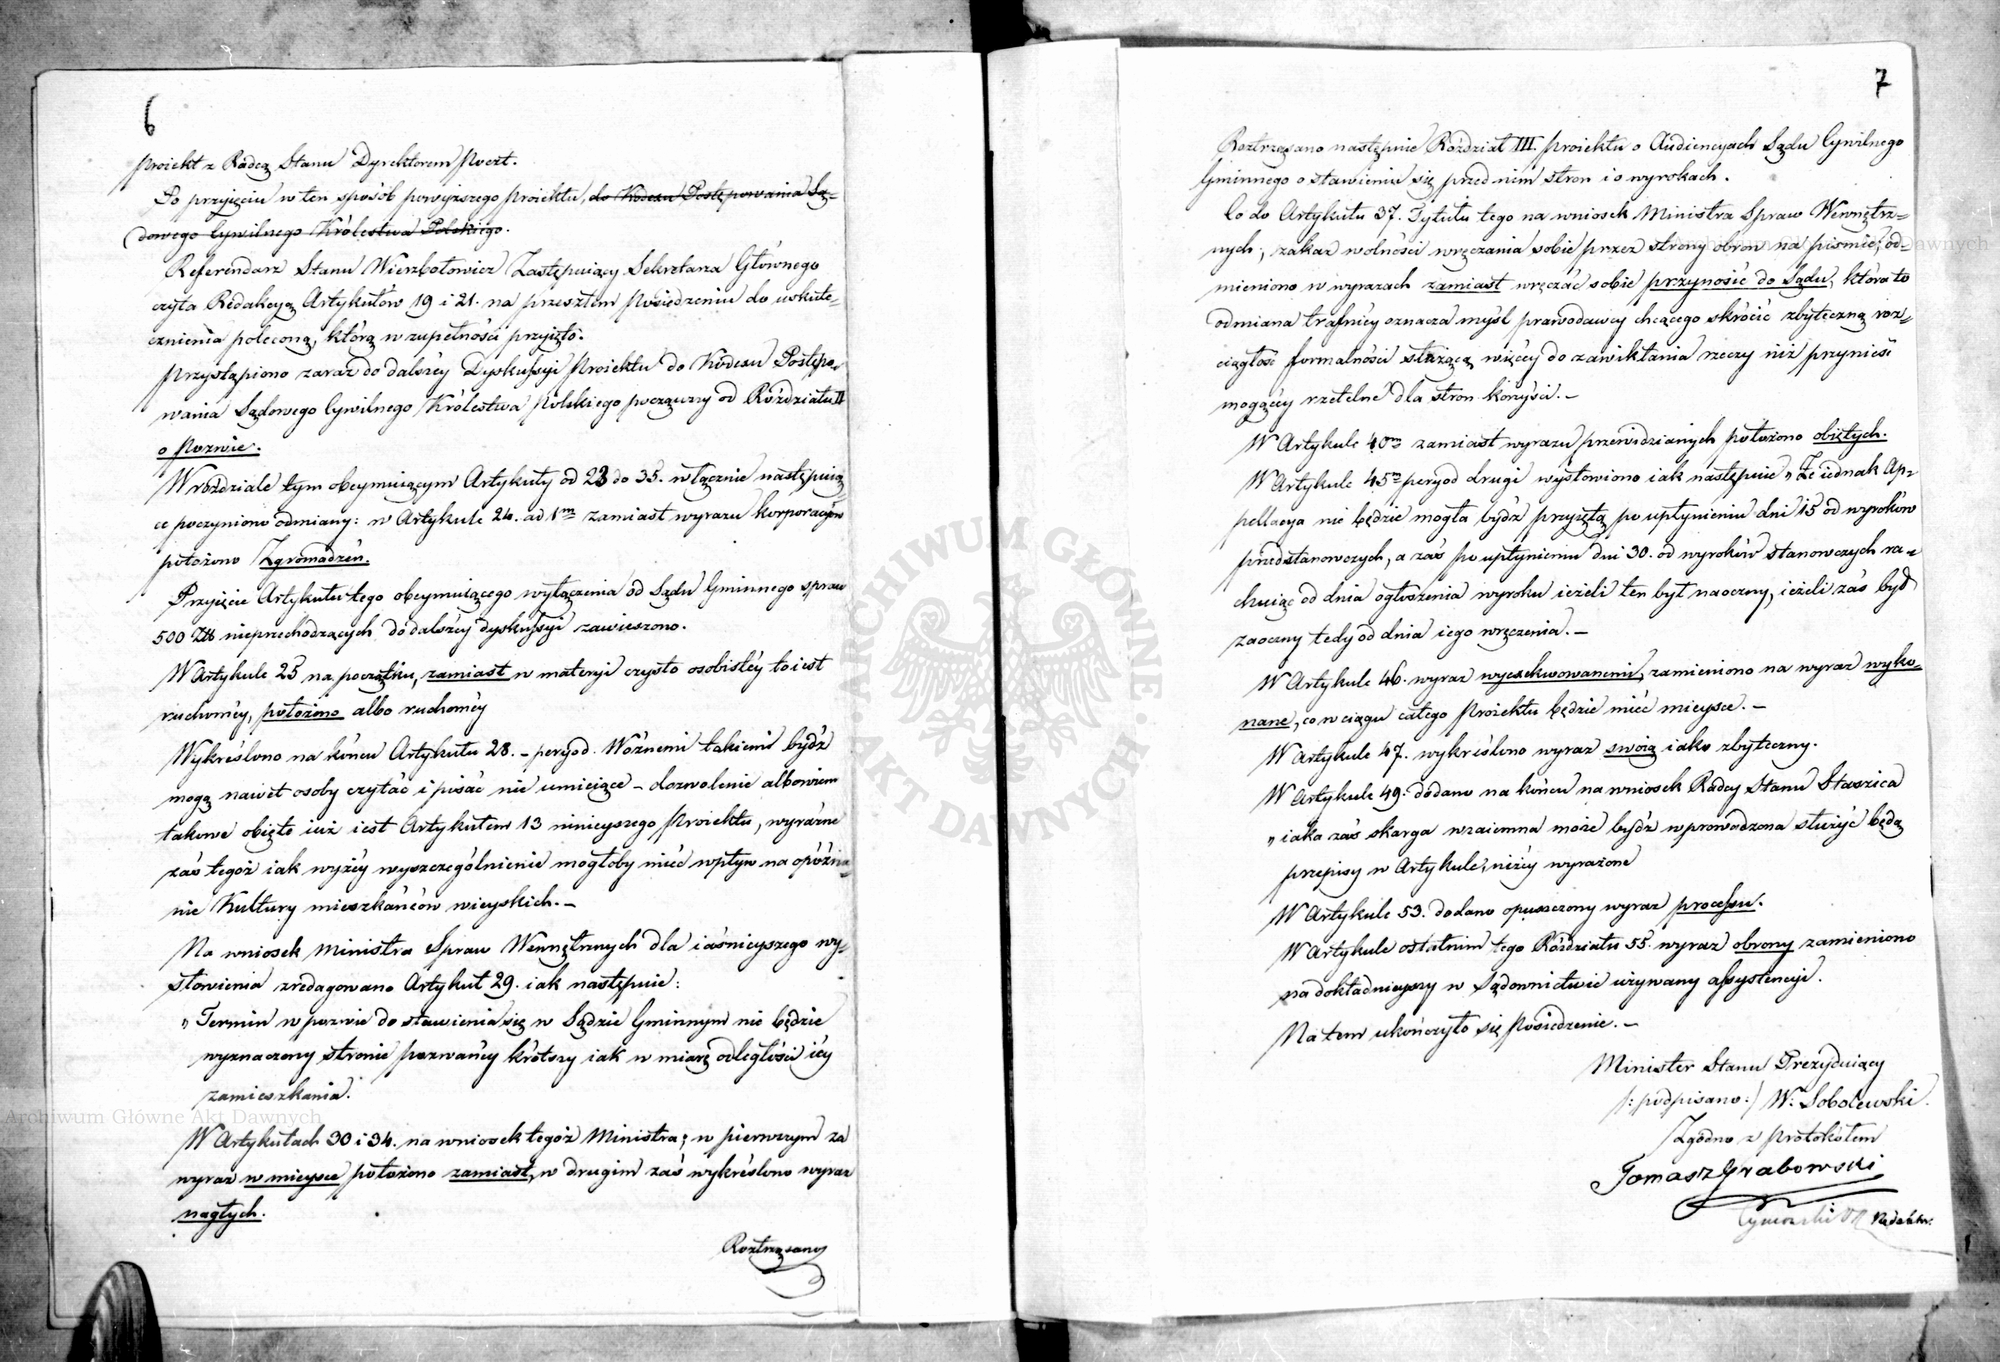 6
Proiekt z Radcą Stanu Dyrektorem Poczt.
Po przyięciu w ten sposób powyższego proiektu, do Kodexu Postępowania Są-
dowego Cywilnego Królestwa Polskiego.
Referendarz Stanu Wierzbołowicz Zastępuiący Sekretarza Głównego
czyta Redakcyą Artykułów 19 i 21. na przeszłem Posiedzeniu do uskute-
cznienia poleconą, którą w zupełności przyięto.
Przystąpiono zaraz do dalszéy Dyskussyi Proiektu do Kodexu Postępo-
wania Sądowego Cywilnego Królestwa Polskiego począwszy od Róździału II
o Pozwie.
W róździale tym obeymuiącym Artykuły od 23 do 35. włącznie następuią-
ce poczyniono odmiany: w Artykule 24. ad 1m zamiast wyrazu korporacyów
położono Zgromadzeń.
Przyięcie Artykułu tego obeymuiącego wyłączenia od Sądu Gminnego spraw
500 Zł. nieprzechodzących do dalszéy dyskussyi zawieszono.
W Artykule 25 na początku, zamiast w materyi czysto osobistéy to iest
ruchoméy, położono albo ruchoméy
Wykreślono na końcu Artykułu 28. – peryod. Woźnemi takiemi bydź
mogą nawet osoby czytać i pisać nie umieiące – dozwolenie albowiem
takowe obięte iuż iest Artykułem 13 ninieyszego Proiektu, wyraźne
zaś tegoż iak wyżéy wyszczególnienie mogłoby mieć wpływ na opóźnie-
nie Kultury mieszkańców wieyskich. –
Na wniosek Ministra Spraw Wewnętrznych dla iaśnieyszego wy-
słowienia zredagowano Artykuł 29. iak następuie:
„Termin w pozwie do stawienia się w Sądzie Gminnym nie będzie
wyznaczony stronie pozwanéy krótszy iak w miarę odległości iéy
zamieszkania.
W Artykułach 30 i 34. na wniosek tegoż Ministra; w pierwszym za
wyraz w mieysce położono zamiast, w drugim zaś wykreślono wyraz
nagłych.
Roztrząsano
7
Roztrząsano następnie Róździał III. proiektu o Audiencyach Sądu Cywilnego
Gminnego o stawieniu się przed nim stron i o wyrokach.
Co do Artykułu 37. Tytułu tego na wniosek Ministra Spraw Wewnętrz-
nych, zakaz wolności wręczania sobie przez strony obron na piśmie, od-
mieniono w wyrazach zamiast wręczać sobie przynosić do Sądu, która to
odmiana trafniey oznacza myśl prawodawcy chcącego skrócić zbyteczną roz-
ciągłość formalności służącą więcéy do zawikłania rzeczy niż przynieść
mogącéy rzetelne dla stron korzyści. –
W Artykule 40m zamiast wyrazu przewidzianych położono obiętych.
W Artykule 45m peryod drugi wysłowiono iak następuie „Że iednak Ap-
pellacya nie będzie mogła bydź przyiętą po upłynieniu dni 15 od wyroków
przedstanowczych, a zaś po upłynieniu dni 30. od wyroków stanowczych ra-
chuiąc od dnia ogłoszenia wyroku ieżeli ten był naoczny, ieżeli zaś był
zaoczny tedy od dnia iego wręczenia. –
W Artykule 46. wyraz wyexekwowanemi, zamieniono na wyraz wyko-
nane, co w ciągu całego Proiektu będzie mieć mieysce. –
W Artykule 47. wykreślono wyraz swoią iako zbyteczny.
W Artykule 49. dodano na końcu na wniosek Radcy Stanu Staszica
„iaka zaś skarga wzaiemna może bydź wprowadzona służyć będą
przepisy w Artykule, niżéy wyrażone
W Artykule 53. dodano opuszczony wyraz processu.
W Artykule ostatnim tego Róździału 55. wyraz obrony zamieniono
na dokładnieyszy w Sądownictwie używany assystencyi.
Na tem ukończyło się Posiedzenie. –
Minister Stanu Prezyduiący
/: podpisano :/ W. Sobolewski.
Zgodno z protokółem
Tomasz Grabowski
Redaktor.
ARCHIWUM GŁÓWNE AKT DAWNYCH
Archiwum Główne Akt Dawnych